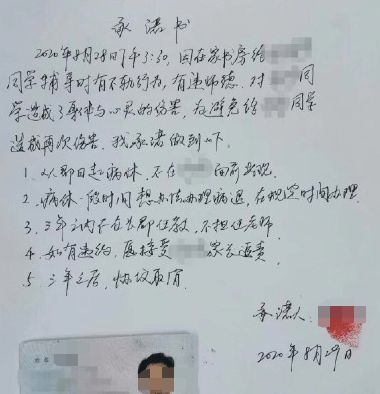 承诺书
2020年8月28日下午3:30,因在家书房给
同学辅导时有不轨行为,有违师德.对 同
学造成了身体与心灵的伤害,为避免给 同学
造成再次伤害.我承诺做到以下.
1.从即日起病休.不在 面前出现.
2.病休一段时间想办法办理病退,在规定时间办理.
3.三年之内不在长郡任教,不担任老师
4.如有违约,愿接受 家长追责.
5.三年之后,协议取消.
承诺人:
2020年8月29日
姓名